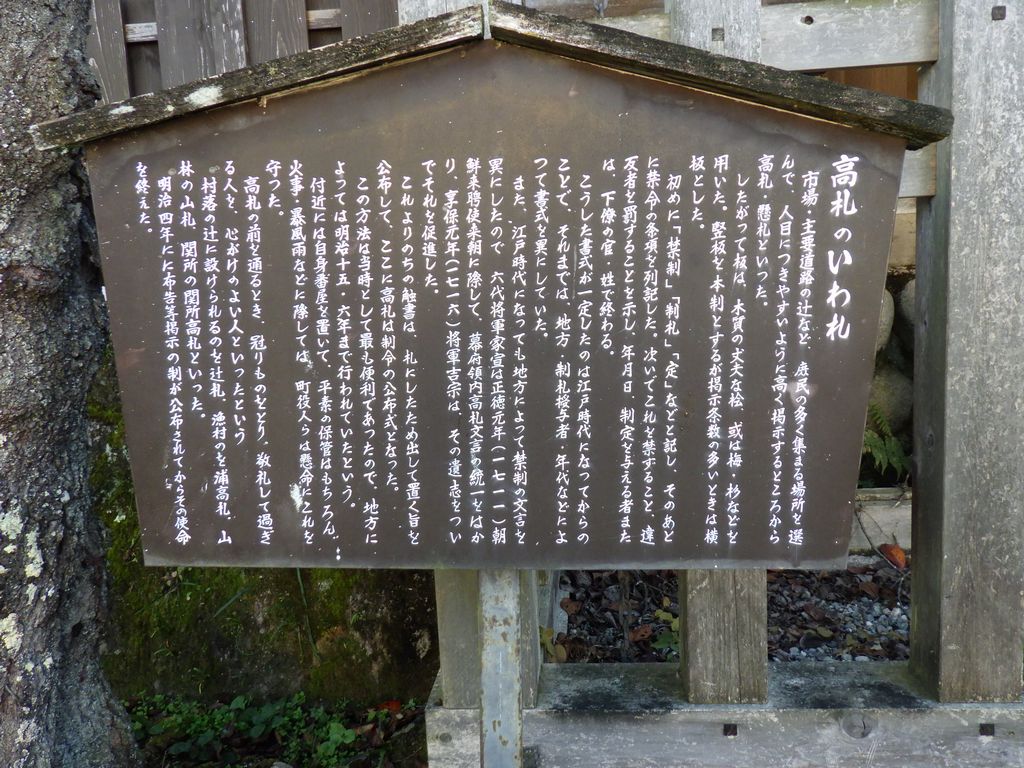 高札のいわれ
市場・主要道路の辻など、庶民の多く集まる場所を選
んで、人目につきやすいように高く掲示するところから
高札・懸札といった。
したがって板は、木質の丈夫な桧、或は梅・杉などを
用いた。竪板を本制とするが掲示条数の多いときは横
板とした。
初めに「禁制」「制札」「定」などと記し、そのあと
に禁令の条項を列記した。次いでこれを禁ずること、違
反者を罰することを示し、年月日、制定を与える者また
は、下僚の官、姓で終わる。
こうした書式が一定したのは江戸時代になってからの
ことで、それまでは、地方・制札授与者・年代などによ
って書式を異にしていた。
また、江戸時代になっても地方によって禁制の文言を
異にしたので、六代将軍家宣は正徳元年(一七一一)朝
鮮来聘使来朝に際して、幕府領内高札文言の統一をはか
り、享保元年(一七一六)将軍吉宗は、その遺志をつい
でそれを促進した。
これよりのちの触書は、札にしたため出して置く旨を
公布して、ここに高札は制令の公布式となった。
この方法は当時として最も便利であったので、地方に
よっては明治十五・六年まで行われていたという。
付近には自身番屋を置いて、平素の保管はもちろん、
火事・暴風雨などに際しては、町役人らは懸命にこれを
守った。
高札の前を通るとき、冠りものをとり、敬礼して過ぎ
る人を、心がけのよい人といったという
村落の辻に設けられるのを辻札、漁村のを浦高札、山
林の山札、関所の関所高札といった。
明治四年にに布告等掲示の制が公布されてからその使命
を終えた。